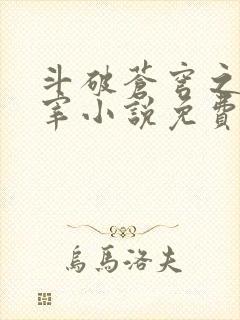 斗破蒼穹之
宰小說免費
烏馬洛夫